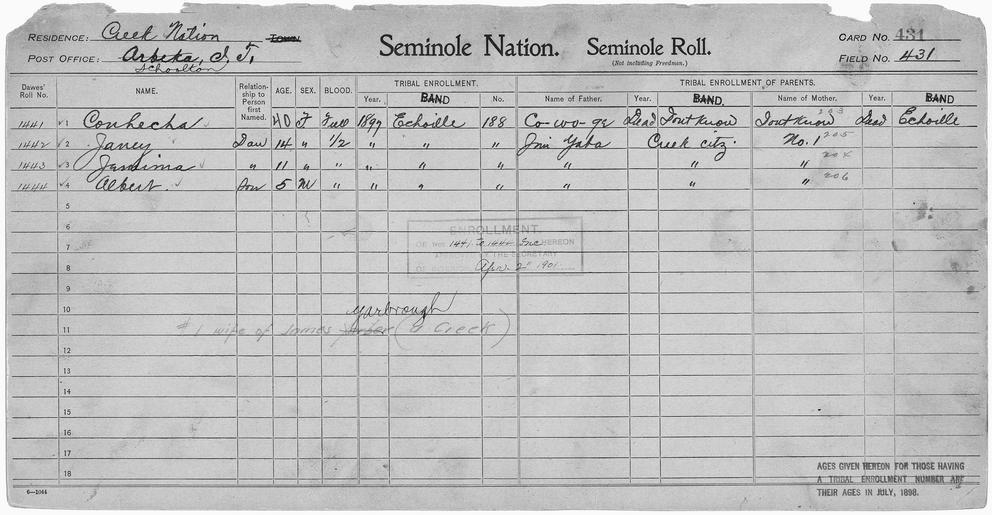 RESIDENCE: Creek Nation TOWN
POST OFFICE: Arbeka, I. T.
Schoolton
Seminole Nation. Seminole Roll.
(Not including Freedmen.)
CARD NO. 431
FIELD NO. 431
Dawes' Roll No. NAME. Relationship to Person first Named. AGE. SEX. BLOOD. TRIBAL ENROLLMENT. TRIBAL ENROLLMENT OF PARENTS.
Year. BAND No. Name of Father. Year. BAND. Name of Mother. Year. BAND
1441 1 Conhecha 40 F Full 1897 Echoille 188 Co-wo-ge Dead Dont Know Dont Know 203 Dead Echoille
1442 2 Janey Dau 14 " 1/2 " " " Jim Yaba Creek citz. No. 1 205
1443 3 Jemima " 11 " " " " " " " " 204
1444 4 Albert Son 5 M " " " " " " " 206
5
6
7
8
9
10
11
12
13
14
15
16
17
18
ENROLLMENT
OF NOS 1441 to 1444 Inc HEREON
APPROVED BY THE SECRETARY
OF Apr. 2" 1901
Yarbrough
#1 wife of James (a Creek)
6—1044
AGES GIVEN HEREON FOR THOSE HAVING
A TRIBAL ENROLLMENT NUMBER ARE
THEIR AGES IN JULY, 1898.